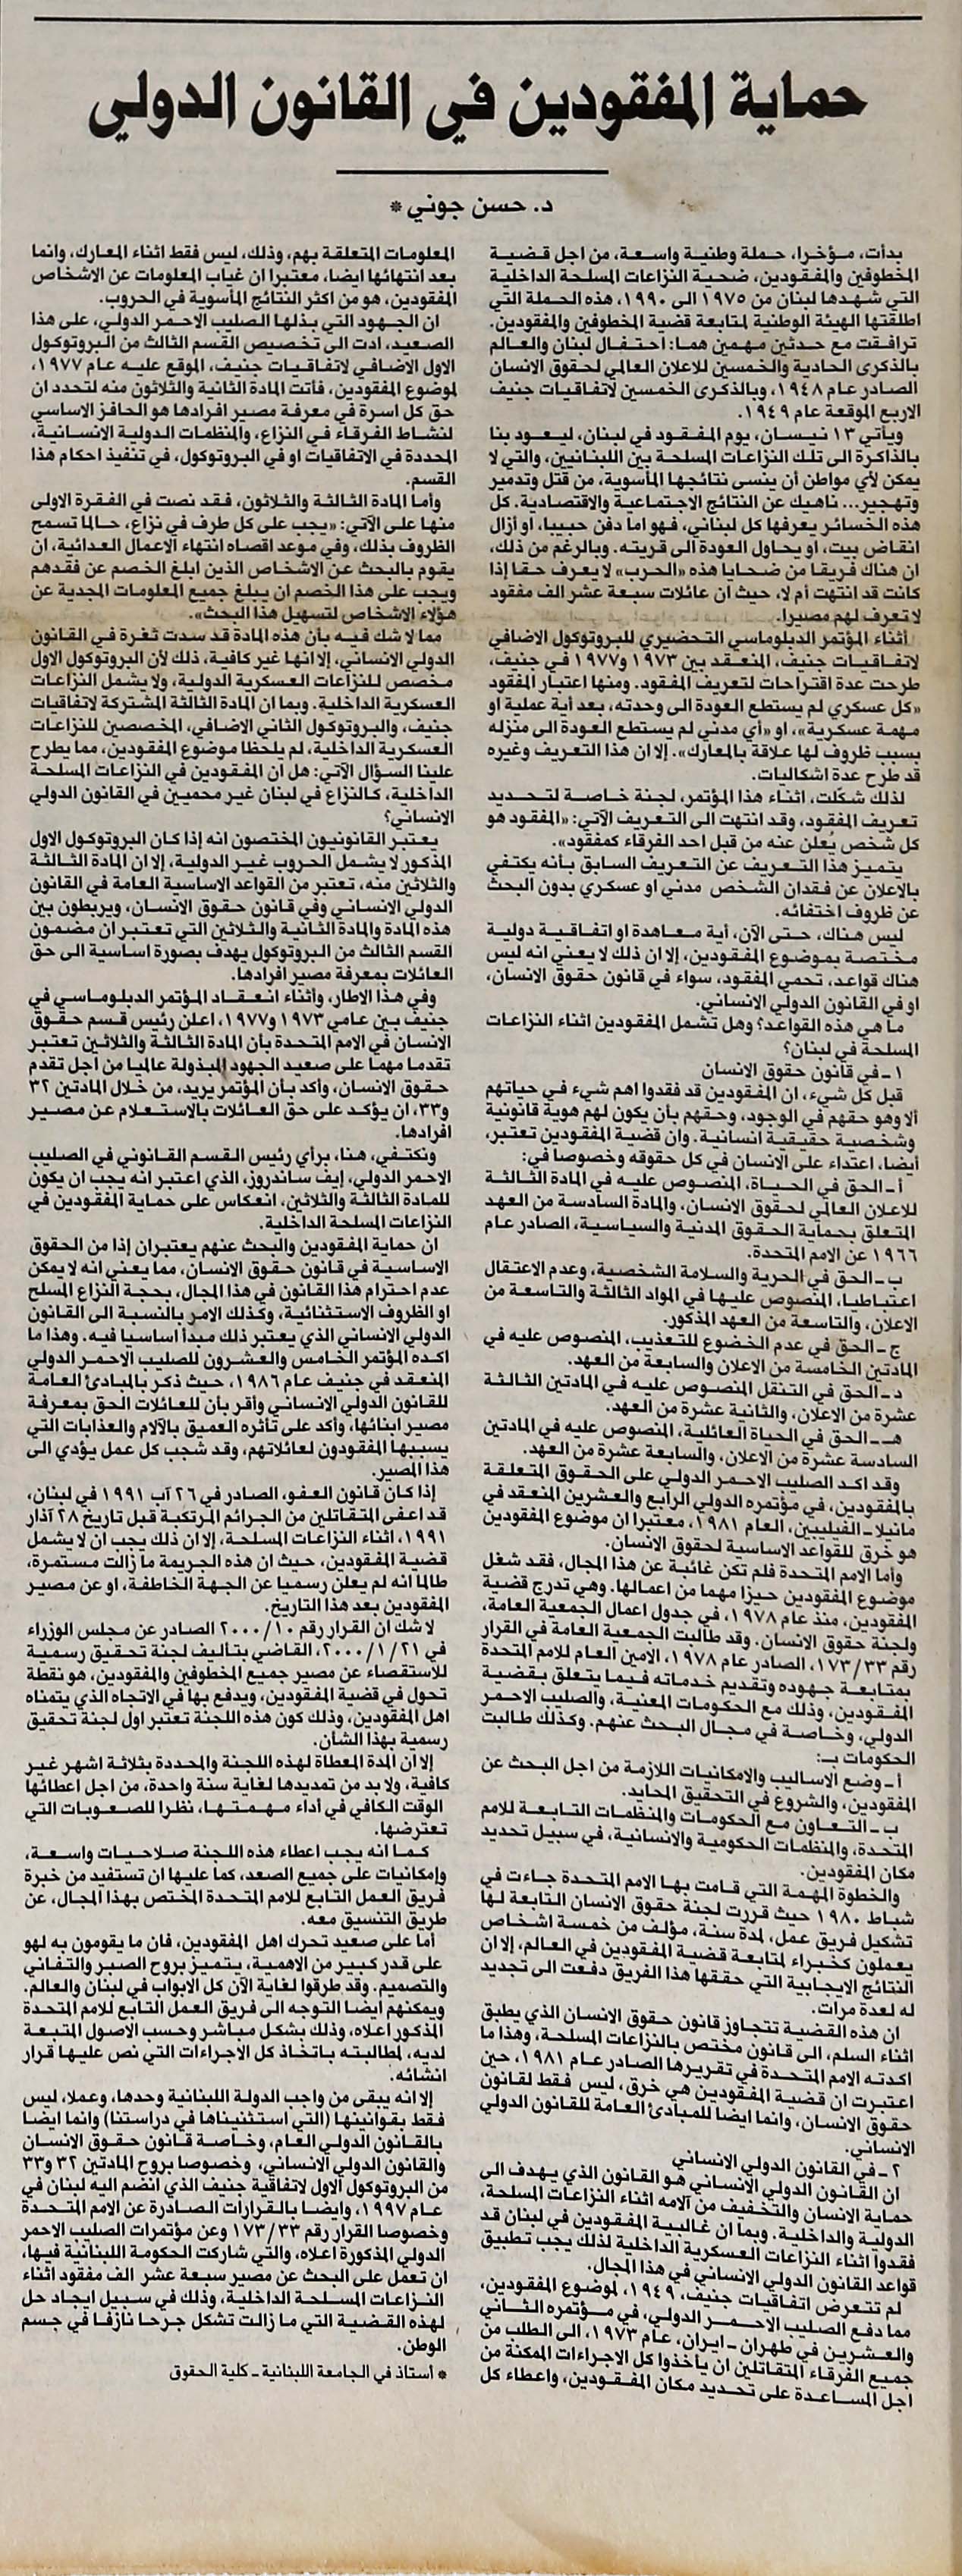 حماية المفقودين في القانون الدولي
د. حسن جوني *
بدأت، مؤخرا، حملة وطنية واسعة، من اجل قضية
المخطوفين والمفقودين، ضحية النزاعات المسلحة الداخلية
التي شهدها لبنان من ١٩٧٥ الى ١٩٩٠، هذه الحملة التي
اطلقتها الهيئة الوطنية لمتابعة قضية المخطوفين والمفقودين.
ترافقت مع حدثين مهمين هما: احتفال لبنان والعالم
بالذكرى الحادية والخمسين للاعلان العالمي لحقوق الانسان
الصادر عام ١٩٤٨، وبالذكرى الخمسين لاتفاقيات جنيف
الاربع الموقعة عام ١٩٤٩.
ويأتي ١٣ نيسان، يوم المفقود في لبنان، ليعود بنا
بالذاكرة الى تلك النزاعات المسلحة بين اللبنانيين، والتي لا
يمكن لأي مواطن أن ينسى نتائجها المأسوية، من قتل وتدمير
وتهجير... ناهيك عن النتائج الاجتماعية والاقتصادية. كل
هذه الخسائر يعرفها كل لبناني، فهو اما دفن حبيبا، او أزال
انقاض بيت، او يحاول العودة الى قريته. وبالرغم من ذلك،
ان هناك فريقا من ضحايا هذه «الحرب» لا يعرف حقا إذا
كانت قد انتهت أم لا، حيث ان عائلات سبعة عشر الف مفقود
لا تعرف لهم مصيرا.
أثناء المؤتمر الدبلوماسي التحضيري للبروتوكول الاضافي
لاتفاقيات جنيف، المنعقد بين ١٩٧٣ و١٩٧٧ في جنيف،
طرحت عدة اقتراحات لتعريف المفقود. ومنها اعتبار المفقود
«كل عسكري لم يستطع العودة الى وحدته، بعد أية عملية او
مهمة عسكرية»، او «أي مدني لم يستطع العودة الى منزله
بسبب ظروف لها علاقة بالمعارك». إلا ان هذا التعريف وغيره
قد طرح عدة اشكاليات.
لذلك شكّلت، اثناء هذا المؤتمر، لجنة خاصة لتحديد
تعريف المفقود، وقد انتهت الى التعريف الآتي: «المفقود هو
كل شخص يُعلن عنه من قبل احد الفرقاء كمفقود».
يتميز هذا التعريف عن التعريف السابق بأنه يكتفي
بالاعلان عن فقدان الشخص مدني او عسكري بدون البحث
عن ظروف اختفائه.
ليس هناك، حتى الآن، أية معاهدة او اتفاقية دولية
مختصة بموضوع المفقودين، إلا ان ذلك لا يعني انه ليس
هناك قواعد، تحمي المفقود، سواء في قانون حقوق الانسان،
او في القانون الدولي الانساني.
ما هي هذه القواعد؟ وهل تشمل المفقودين اثناء النزاعات
المسلحة في لبنان؟
١ ـ في قانون حقوق الانسان
قبل كل شيء، ان المفقودين قد فقدوا اهم شيء في حياتهم
ألا وهو حقهم في الوجود، وحقهم بأن يكون لهم هوية قانونية
وشخصية حقيقية انسانية. وان قضية المفقودين تعتبر،
أيضا، اعتداء على الانسان في كل حقوقه وخصوصا في:
أ ـ الحق في الحياة، المنصوص عليه في المادة الثالثة
للاعلان العالمي لحقوق الانسان، والمادة السادسة من العهد
المتعلق بحماية الحقوق المدنية والسياسية، الصادر عام
١٩٦٦ عن الامم المتحدة.
ب ـ الحق في الحرية والسلامة الشخصية، وعدم الاعتقال
اعتباطيا، المنصوص عليها في المواد الثالثة والتاسعة من
الاعلان، والتاسعة من العهد المذكور.
ج ـ الحق في عدم الخضوع للتعذيب، المنصوص عليه في
المادتين الخامسة من الاعلان والسابعة من العهد.
د ـ الحق في التنقل المنصوص عليه في المادتين الثالثة
عشرة من الاعلان، والثانية عشرة من العهد.
هـ ـ الحق في الحياة العائلية، المنصوص عليه في المادتين
السادسة عشرة من الاعلان، والسابعة عشرة من العهد.
وقد اكد الصليب الاحمر الدولي على الحقوق المتعلقة
بالمفقودين، في مؤتمره الدولي الرابع والعشرين المنعقد في
مانيلا ـ الفيليبين، العام ١٩٨١، معتبرا ان موضوع المفقودين
هو خرق للقواعد الاساسية لحقوق الانسان.
وأما الامم المتحدة فلم تكن غائبة عن هذا المجال، فقد شغل
موضوع المفقودين حيزا مهما من اعمالها. وهي تدرج قضية
المفقودين، منذ عام ١٩٧٨، في جدول اعمال الجمعية العامة،
ولجنة حقوق الانسان. وقد طالبت الجمعية العامة في القرار
رقم ١٧٣/٣٣، الصادر عام ١٩٧٨، الامين العام للامم المتحدة
بمتابعة جهوده وتقديم خدماته فيما يتعلق بقضية
المفقودين، وذلك مع الحكومات المعنية، والصليب الاحمر
الدولي، وخاصة في مجال البحث عنهم. وكذلك طالبت
الحكومات بـ:
أ ـ وضع الاساليب والامكانيات اللازمة من اجل البحث عن
المفقودين، والشروع في التحقيق المحايد.
ب ـ التعاون مع الحكومات والمنظمات التابعة للامم
المتحدة، والمنظمات الحكومية والانسانية، في سبيل تحديد
مكان المفقودين.
والخطوة المهمة التي قامت بها الامم المتحدة جاءت في
شباط ١٩٨٠ حيث قررت لجنة حقوق الانسان التابعة لها
تشكيل فريق عمل، لمدة سنة، مؤلف من خمسة اشخاص
يعملون كخبراء لمتابعة قضية المفقودين في العالم، إلا ان
النتائج الايجابية التي حققها هذا الفريق دفعت الى تجديد
له لعدة مرات.
ان هذه القضية تتجاوز قانون حقوق الانسان الذي يطبق
اثناء السلم، الى قانون مختص بالنزاعات المسلحة، وهذا ما
اكدته الامم المتحدة في تقريرها الصادر عام ١٩٨١، حين
اعتبرت ان قضية المفقودين هي خرق، ليس فقط لقانون
حقوق الانسان، وانما ايضا للمبادئ العامة للقانون الدولي
الانساني.
٢ ـ في القانون الدولي الانساني
ان القانون الدولي الانساني هو القانون الذي يهدف الى
حماية الانسان والتخفيف من آلامه اثناء النزاعات المسلحة،
الدولية والداخلية. وبما ان غالبية المفقودين في لبنان قد
فقدوا اثناء النزاعات العسكرية الداخلية لذلك يجب تطبيق
قواعد القانون الدولي الانساني في هذا المجال.
لم تتعرض اتفاقيات جنيف، ١٩٤٩، لموضوع المفقودين،
مما دفع الصليب الاحمر الدولي، في مؤتمره الثاني
والعشرين في طهران ـ ايران، عام ١٩٧٣، الى الطلب من
جميع الفرقاء المتقاتلين ان يأخذوا كل الاجراءات الممكنة من
اجل المساعدة على تحديد مكان المفقودين، واعطاء كل
المعلومات المتعلقة بهم، وذلك، ليس فقط اثناء المعارك، وانما
بعد انتهائها ايضا، معتبرا ان غياب المعلومات عن الاشخاص
المفقودين، هو من اكثر النتائج المأسوية في الحروب.
ان الجهود التي بذلها الصليب الاحمر الدولي، على هذا
الصعيد، ادت الى تخصيص القسم الثالث من البروتوكول
الاول الاضافي لاتفاقيات جنيف، الموقع عليه عام ١٩٧٧،
لموضوع المفقودين، فأتت المادة الثانية والثلاثون منه لتحدد ان
حق كل اسرة في معرفة مصير افرادها هو الحافز الاساسي
لنشاط الفرقاء في النزاع، والمنظمات الدولية الانسانية،
المحددة في الاتفاقيات او في البروتوكول، في تنفيذ احكام هذا
القسم.
وأما المادة الثالثة والثلاثون، فقد نصت في الفقرة الاولى
منها على الآتي: «يجب على كل طرف في نزاع، حالما تسمح
الظروف بذلك، وفي موعد اقصاه انتهاء الاعمال العدائية، ان
يقوم بالبحث عن الاشخاص الذين ابلغ الخصم عن فقدهم
ويجب على هذا الخصم ان يبلغ جميع المعلومات المجدية عن
هؤلاء الاشخاص لتسهيل هذا البحث».
مما لا شك فيه بأن هذه المادة قد سدت ثغرة في القانون
الدولي الانساني، إلا انها غير كافية، ذلك لأن البروتوكول الاول
مخصص للنزاعات العسكرية الدولية، ولا يشمل النزاعات
العسكرية الداخلية. وبما ان المادة الثالثة المشتركة لاتفاقيات
جنيف، والبروتوكول الثاني الاضافي، المخصصين للنزاعات
العسكرية الداخلية، لم يلحظا موضوع المفقودين، مما يطرح
علينا السؤال الآتي: هل ان المفقودين في النزاعات المسلحة
الداخلية، كالنزاع في لبنان غير محميين في القانون الدولي
الانساني؟
يعتبر القانونيون المختصون انه إذا كان البروتوكول الاول
المذكور لا يشمل الحروب غير الدولية، إلا ان المادة الثالثة
والثلاثين منه، تعتبر من القواعد الاساسية العامة في القانون
الدولي الانساني وفي قانون حقوق الانسان، ويربطون بين
هذه المادة والمادة الثانية والثلاثين التي تعتبر ان مضمون
القسم الثالث من البروتوكول يهدف بصورة اساسية الى حق
العائلات بمعرفة مصير افرادها.
وفي هذا الاطار، وأثناء انعقاد المؤتمر الدبلوماسي في
جنيف بين عامي ١٩٧٣ و١٩٧٧، اعلن رئيس قسم حقوق
الانسان في الامم المتحدة بأن المادة الثالثة والثلاثين تعتبر
تقدما مهما على صعيد الجهود المبذولة عالميا من اجل تقدم
حقوق الانسان، وأكد بأن المؤتمر يريد، من خلال المادتين ٣٢
و٣٣، ان يؤكد على حق العائلات بالاستعلام عن مصير
افرادها.
ونكتفي، هنا، برأي رئيس القسم القانوني في الصليب
الاحمر الدولي، إيف ساندروز، الذي اعتبر انه يجب ان يكون
للمادة الثالثة والثلاثين، انعكاس على حماية المفقودين في
النزاعات المسلحة الداخلية.
ان حماية المفقودين والبحث عنهم يعتبران إذا من الحقوق
الاساسية في قانون حقوق الانسان، مما يعني انه لا يمكن
عدم احترام هذا القانون في هذا المجال، بحجة النزاع المسلح
او الظروف الاستثنائية، وكذلك الامر بالنسبة الى القانون
الدولي الانساني الذي يعتبر ذلك مبدأ اساسيا فيه. وهذا ما
اكده المؤتمر الخامس والعشرون للصليب الاحمر الدولي
المنعقد في جنيف عام ١٩٨٦، حيث ذكر بالمبادئ العامة
للقانون الدولي الانساني وأقر بأن للعائلات الحق بمعرفة
مصير ابنائها، وأكد على تأثره العميق بالآلام والعذابات التي
يسببها المفقودون لعائلاتهم، وقد شجب كل عمل يؤدي الى
هذا المصير.
إذا كان قانون العفو، الصادر في ٢٦ آب ١٩٩١ في لبنان،
قد اعفى المتقاتلين من الجرائم المرتكبة قبل تاريخ ٢٨ آذار
١٩٩١، اثناء النزاعات المسلحة، إلا ان ذلك يجب ان لا يشمل
قضية المفقودين، حيث ان هذه الجريمة ما زالت مستمرة،
طالما انه لم يعلن رسميا عن الجهة الخاطفة، او عن مصير
المفقودين بعد هذا التاريخ.
لا شك ان القرار رقم ٢٠٠٠/١٠ الصادر عن مجلس الوزراء
في ٢٠٠٠/١/٢١، القاضي بتأليف لجنة تحقيق رسمية
للاستقصاء عن مصير جميع المخطوفين والمفقودين، هو نقطة
تحول في قضية المفقودين، ويدفع بها في الاتجاه الذي يتمناه
اهل المفقودين، وذلك كون هذه اللجنة تعتبر اول لجنة تحقيق
رسمية بهذا الشأن.
إلا أن المدة المعطاة لهذه اللجنة والمحددة بثلاثة اشهر غير
كافية، ولا بد من تمديدها لغاية سنة واحدة، من اجل اعطائها
الوقت الكافي في أداء مهمتها، نظرا للصعوبات التي
تعترضها.
كما انه يجب اعطاء هذه اللجنة صلاحيات واسعة،
وإمكانيات على جميع الصعد، كما عليها ان تستفيد من خبرة
فريق العمل التابع للامم المتحدة المختص بهذا المجال، عن
طريق التنسيق معه.
أما على صعيد تحرك اهل المفقودين، فان ما يقومون به لهو
على قدر كبير من الاهمية، يتميز بروح الصبر والتفاني
والتصميم. وقد طرقوا لغاية الآن كل الابواب في لبنان والعالم.
ويمكنهم ايضا التوجه الى فريق العمل التابع للامم المتحدة
المذكور اعلاه، وذلك بشكل مباشر وحسب الاصول المتبعة
لديه، لمطالبته باتخاذ كل الاجراءات التي نص عليها قرار
انشائه.
إلا انه يبقى من واجب الدولة اللبنانية وحدها، وعملا، ليس
فقط بقوانينها (التي استثنيناها في دراستنا) وانما ايضا
بالقانون الدولي العام، وخاصة قانون حقوق الانسان
والقانون الدولي الانساني، وخصوصا بروح المادتين ٣٢ و٣٣
من البروتوكول الاول لاتفاقية جنيف الذي انضم اليه لبنان في
عام ١٩٩٧، وايضا بالقرارات الصادرة عن الامم المتحدة
وخصوصا القرار رقم ١٧٣/٣٣ وعن مؤتمرات الصليب الاحمر
الدولي المذكورة اعلاه، والتي شاركت الحكومة اللبنانية فيها،
ان تعمل على البحث عن مصير سبعة عشر الف مفقود اثناء
النزاعات المسلحة الداخلية، وذلك في سبيل ايجاد حل
لهذه القضية التي ما زالت تشكل جرحا نازفا في جسم
الوطن.
* أستاذ في الجامعة اللبنانية ـ كلية الحقوق